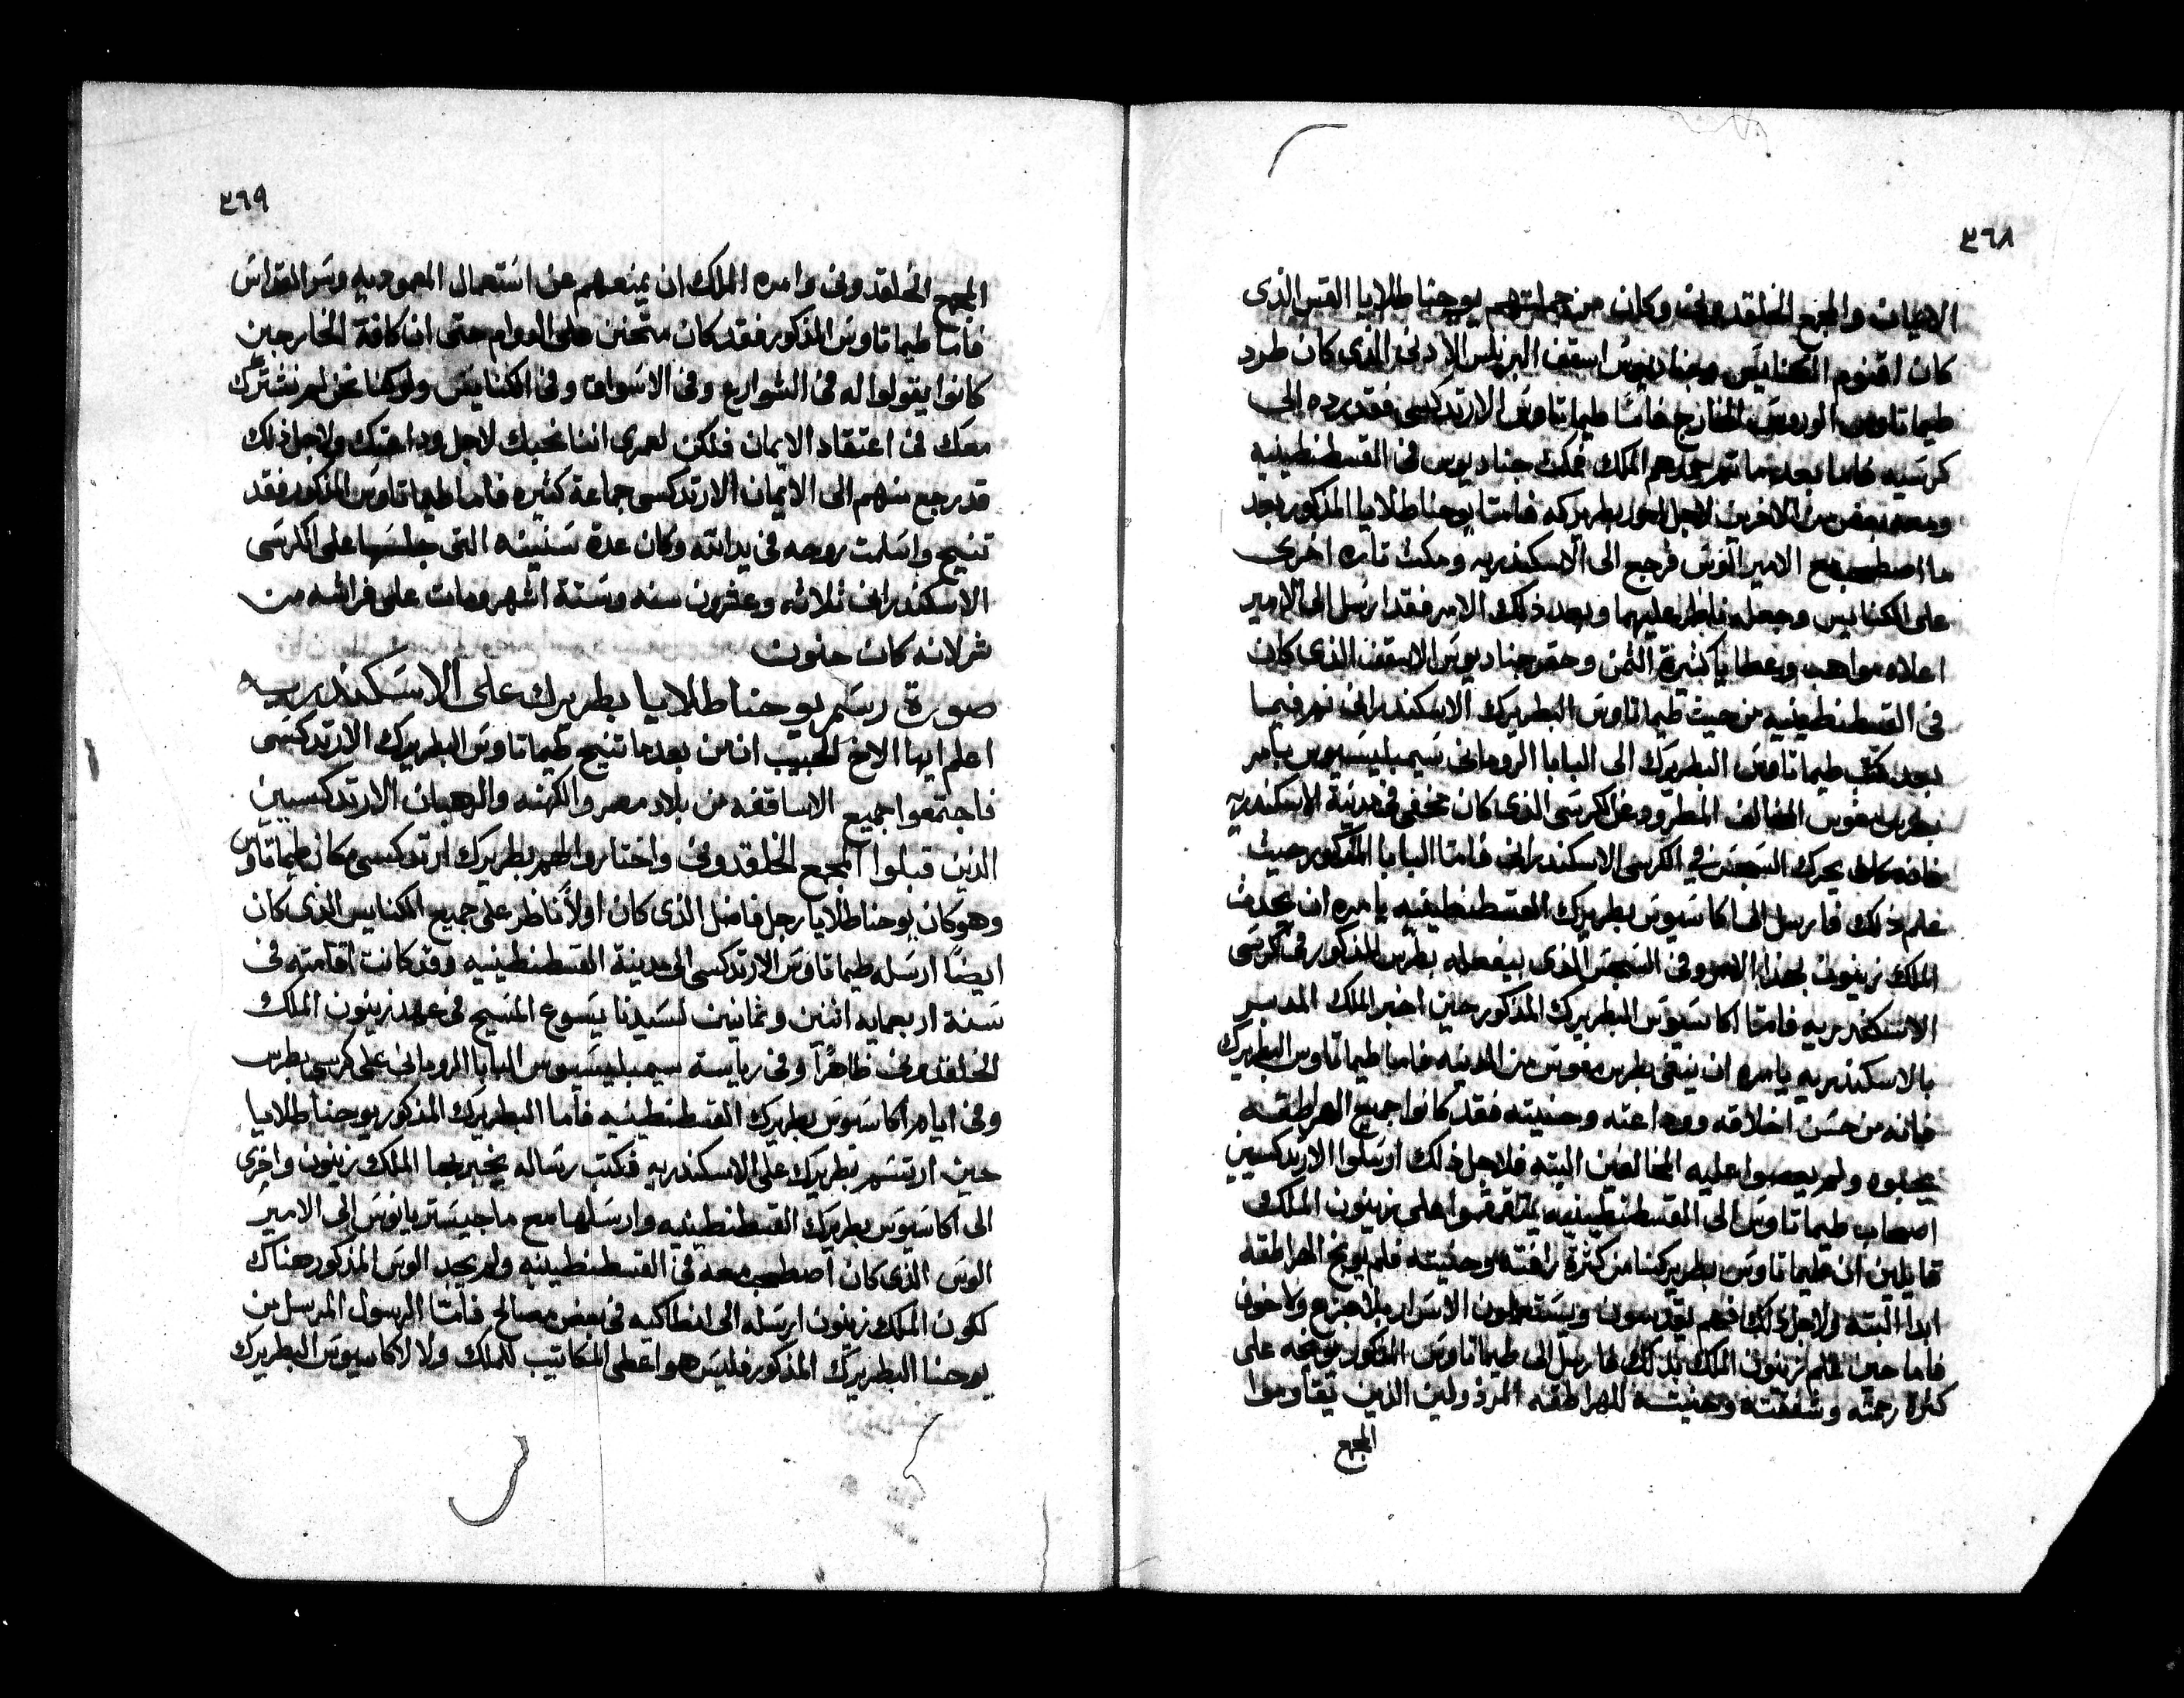 ٣٦٨
الايمان والمجمع الخلقدونى وكان من جملتهم يوحنا طلايا القس الذى
كان اقنوم الكنايس وجناديوس اسقف البرنلس الادنى الذى كان طرد
طيماتاوس الوروس الخارج فاما طيماتاوس الارتدكسى فقد رده الى
كرسيه فاما بعد ما تم جمدهم الملك فمكث جناديوس فى القسطنطينيه
ومعه بعض من الاخرين لاجل امور بطريركه فامتا يوحنا طلايا المذكور بعد
ما اصطحب مع الامير الوس فرجع الى الاسكندريه ومكث تاره اخرى
على الكنايس وجعله ناظر عليهما وبعد ذلك الامر فقد ارسل الى الامير
اعلاه مواهب وعطايا كثيرة الثمن وحقر جناديوس الاسقف الذى كان
فى القسطنطينيه من حيث طيماتاوس البطريرك الاسكندرانى ثم فيما
بعد كتب طيماتاوس البطريرك الى البابا الرومانى سيمبليسيوس بامر
بطرس مغوس المخالف المطرود عن الكرسى الذى كان مخفى فى مدينة الاسكندريه
فانه كان يحرك السجس فى الكرسى الاسكندرانى فامتا البابا المذكور حيث
علم ذلك فارسل الى اكاسيوس بطريرك القسطنطينيه يامره ان يحدث
الملك زينون بهذا الامر وفى السجس الذى بيفعله بطرس المذكور فى كرسى
الاسكندريه فامتا اكاسيوس البطريرك المذكور حين اخبر الملك المدبر
بالاسكندريه يامره ان ينفى بطرس مغوس من المدينه فاما طيماتاوس البطريرك
فانه من حسن اخلاقه ووداعته وحنيته فقد كانوا جميع الهراطقه
يحبوه ولم يعصوا عليه المخالفين البته فلاجل ذلك ارسلوا الارتدكسيين
اصحاب طيماتاوس الى القسطنطينيه يتقرقوا على زينون الملك
قايلين ان طيماتاوس بطريركنا من كثرة رافته وحنيته فلم يوبخ الهراطقه
ابدا البته ولاجل ذلك فهم يقدسون ويستعملون الاسرار بلا جزع ولا خوف
فاما حين علم زينون الملك بذلك فارسل الى طيماتاوس المذكور يوبخه على
كثرة رحمته وشفقته وحنيته للهراطقه المرذولين الذين يقاوموا
المجمع
٣٦٩
المجمع الخلقدونى وامره الملك ان يمنعهم عن استعمال المعموديه وسر القداس
فامتا طيماتاوس المذكور فقد كان متحنن على العوام حتى ان كافة الخارجين
كانوا يقولوا له فى الشوارع وفى الاسواق وفى الكنايس ولو كنا نحن لم نشترك
معك فى اعتقاد الايمان فلكن لعمرى اننا نحبك لاجل وداعتك ولاجل ذلك
قد رجع منهم الى الايمان الارتدكسى جماعة كثيره فاما طيماتاوس المذكور فقد
تنيح واسلمت روحه فى يد الله وكان عدة سنينه التى جلسها على الكرسى
الاسكندرانى ثلاثه وعشرون سنه وستة اشهر ومات على فراشه من
شرلانه كان حنون
صورة رسم يوحنا طلايا بطريرك على الاسكندريه
اعلم ايها الاخ الحبيب ان من بعد ما تنيح طيماتاوس البطريرك الارتدكسى
فاجتمعوا جميع الاساقفه من بلاد مصر والكهنه والرهبان الارتدكسيين
الذين قبلوا المجمع الخلقدونى واختاروا لهم بطريرك ارتدكسى مكان طيماتاوس
وهو كان يوحنا طلايا رجل فاضل الذى كان اولا ناظر على جميع الكنايس الذى كان
ايضا ارسله طيماتاوس الارتدكسى الى مدينة القسطنطينيه وقد كانت اقامته فى
سنة اربعمايه اثنين وثمانين لسيدنا يسوع المسيح فى عهد زينون الملك
الخلقدونى ظاهرا وفى رياسة سيمبليسيوس البابا الرومانى على كرسى بطرس
وفى ايام اكاسيوس بطريرك القسطنطينيه فاما البطريرك المذكور يوحنا طلايا
حين ارتسم بطريرك على الاسكندريه فكتب رساله يخبر بها الملك زينون واخرى
الى اكاسيوس بطريرك القسطنطينيه وارسلها مع ماجيستريانوس الى الامير
الوس الذى كان اصطحب معه فى القسطنطينيه ولم يجد الوس المذكور هناك
لكون الملك زينون ارسله الى انطاكيه فى بعض مصالح فامتا الرسول المرسل من
يوحنا البطريرك المذكور فليس هو اعطى المكاتيب للملك ولا لاكاسيوس البطريرك